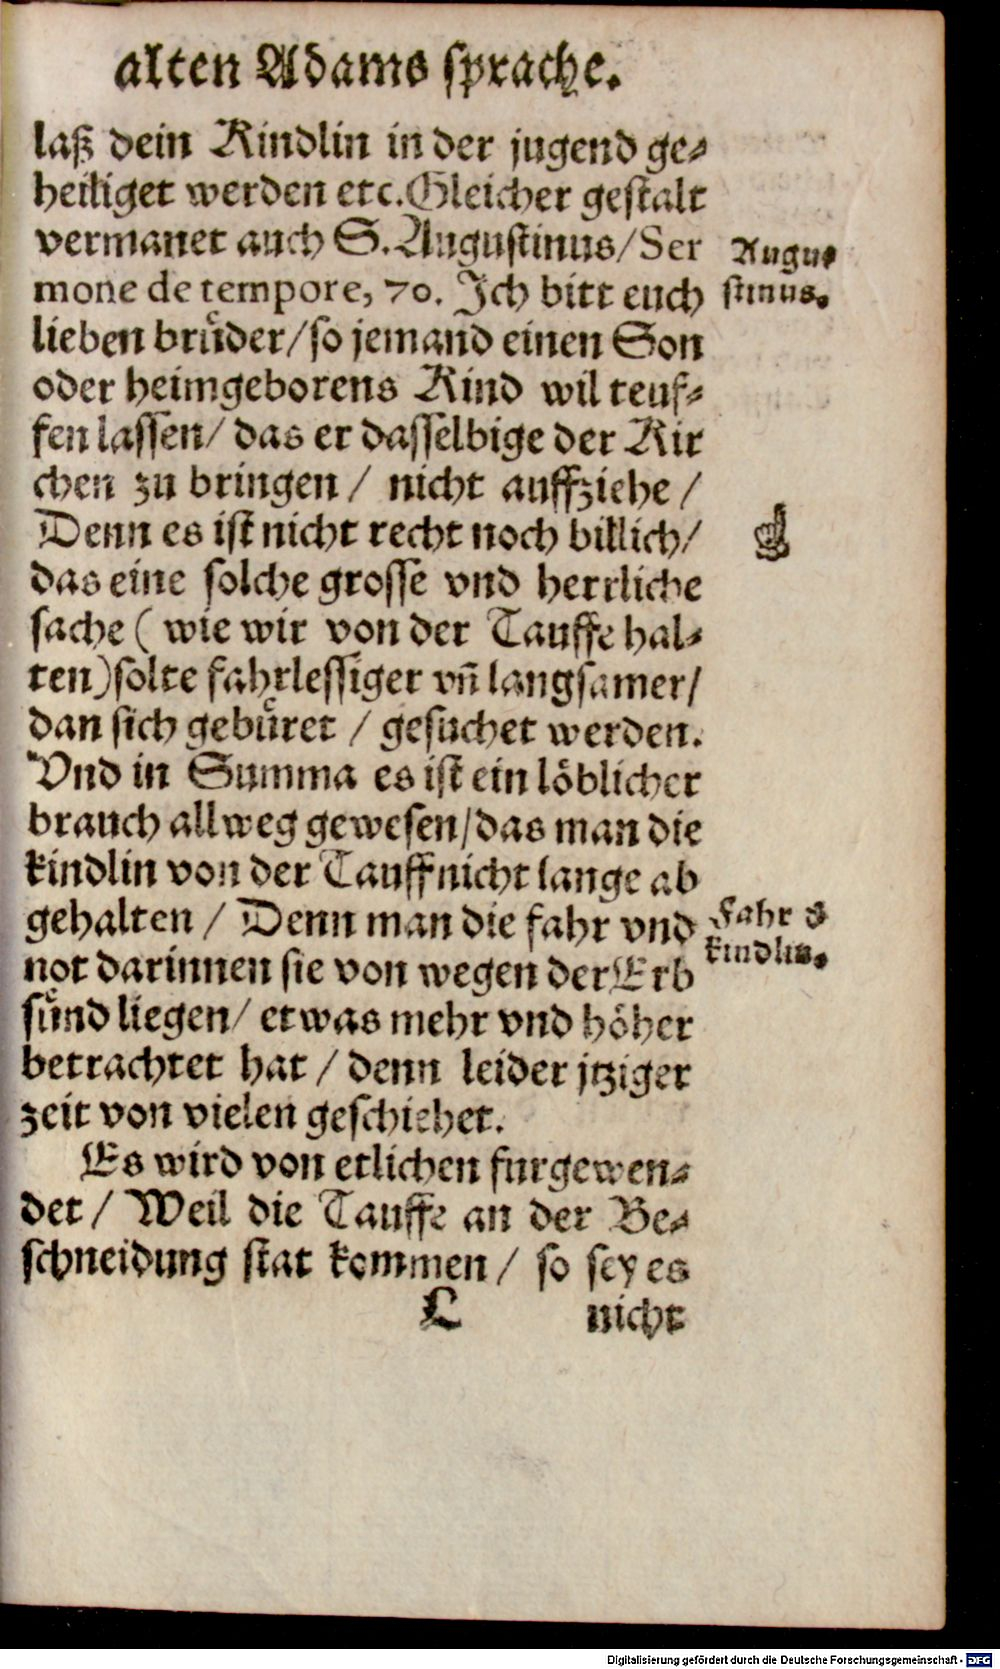 alten Adams sprache.
laß dein Kindlin in der jugend ge⸗
heiliget werden etc. Gleicher gestalt
vermanet auch S. Augustinus/ Ser
mone de tempore, 70. Ich bitt euch
lieben bruͤder/ so jemand einen Son
oder heimgeborens Kind wil teuf⸗
fen lassen/ das er dasselbige der Kir
chen zu bringen / nicht auffziehe /
Denn es ist nicht recht noch billich/
das eine solche grosse vnd herrliche
sache ( wie wir von der Tauffe hal⸗
ten) solte fahrlessiger vñ langsamer/
dan sich gebuͤret / gesuchet werden.
Vnd in Summa es ist ein loͤblicher
brauch allweg gewesen/ das man die
kindlin von der Tauff nicht lange ab
gehalten / Denn man die fahr vnd
not darinnen sie von wegen der Erb
suͤnd liegen/ etwas mehr vnd hoͤher
betrachtet hat / denn leider jtziger
zeit von vielen geschiehet.
Es wird von etlichen furgewen⸗
det / Weil die Tauffe an der Be⸗
schneidung stat kommen / so sey es
L nicht
Augu⸗
stinus.
☝
Fahr d
kindlin.
Digitalisierung gefördert durch die Deutsche Forschungsgemeinschaft - DFG